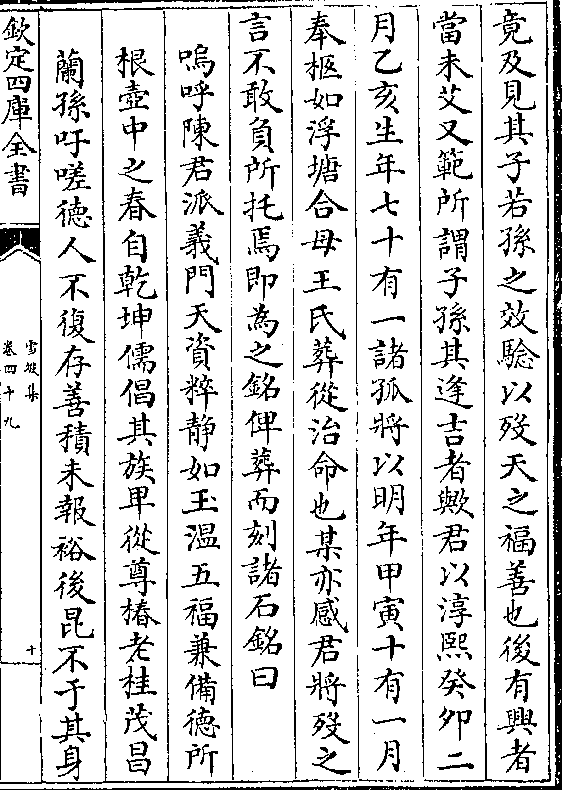 竟及見其子若孫之效驗以歿天之福善也後有興者
當未艾又範所謂子孫其逢吉者歟君以淳熙癸卯二
月乙亥生年七十有一諸孤將以明年甲寅十有一月
奉柩如浮塘合母王氏葬從治命也某亦感君將歿之
言不敢負所托焉即為之銘俾葬而刻諸石銘曰
嗚呼陳君派義門天資粹靜如玉溫五福兼備德所
根壺中之春自乾坤儒倡其族卑從尊椿老桂茂昌
蘭孫吁嗟德人不復存善積未報裕後昆不于其身
欽定四庫全書
雪坡集
卷四十九
十